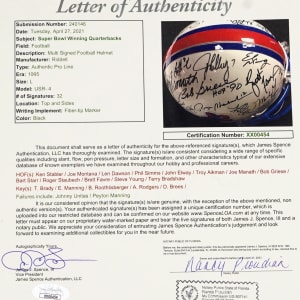 Letter of Authenticity
Submission Number: 240146
Date: Tuesday, April 27, 2021
Subject: Super Bowl Winning Quarterbacks
Field: Football
Item: Multi Signed Football Helmet
Manufacturer: Riddell
Item Type: Authentic Pro Line
Year: 1995
Size: L
Model: USR-4
# of Signatures: 32
Location: Top and Sides
Writing Implement: Fiber-tip Marker
Color: Black
Certification Number: XX00454
This document shall serve as a letter of authenticity for the above-referenced signature(s), which James Spence
Authentication, LLC has thoroughly examined. The signature(s)/inscription(s) are consistent considering a wide range of specific
qualities including slant, flow, pen pressure, letter size and formation, and other characteristics typical of our extensive
database of known exemplars we have examined throughout our hobby and professional careers.
HOF(s): Ken Stabler / Joe Montana / Len Dawson / Phil Simms / John Elway / Troy Aikman / Joe Namath / Bob Griese /
Bart Starr / Roger Staubach / Brett Favre / Steve Young / Terry Bradshaw
Key(s): T. Brady / E. Manning / B. Roethlisberger / A. Rodgers / D. Brees /
Failures include: Johnny Unitas / Peyton Manning
It is our considered opinion that the signature(s) are genuine, with the exception of the above mentioned, non
authentic version(s). Your authenticated signature(s) has been assigned a unique certification number, which is
uploaded into our restricted database and can be confirmed on our website at www.SpenceLOA.com at any time. This letter
must appear on our proprietary water-marked paper and bear the live signatures of both James J. Spence, III and a notary
public. We appreciate your consideration of entrusting James Spence Authentication with your signature, and look forward to
examining additional collectibles for you in the near future.
Autographedly Yours,
James J. Spence, III
Vice President
James Spence Authentication, LLC